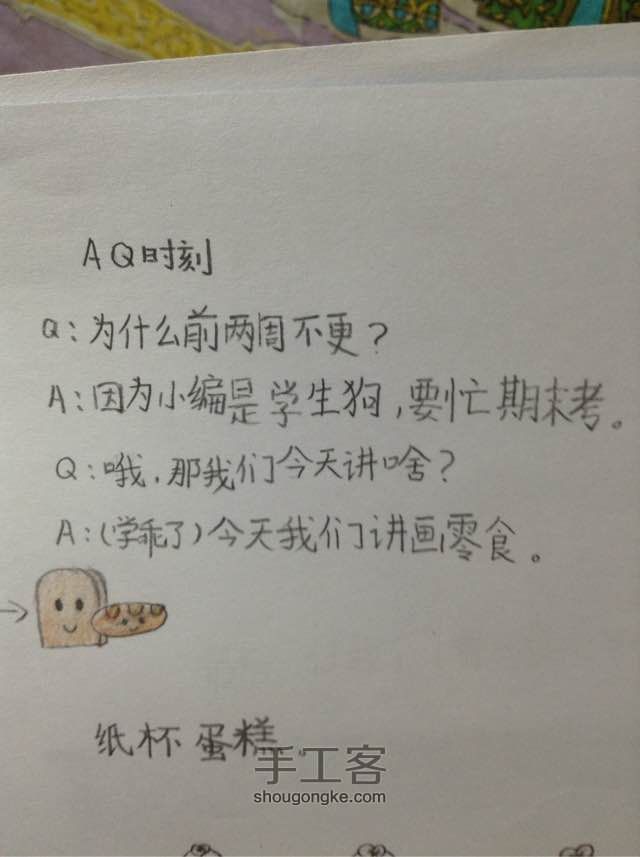 AQ时刻
Q:为什么前两周不更?
A:因为小编是学生狗,要忙期末考。
Q:哦,那我们今天讲啥?
A:(学乖了)今天我们讲画零食。
纸杯蛋糕。
手工客
shougongke.com